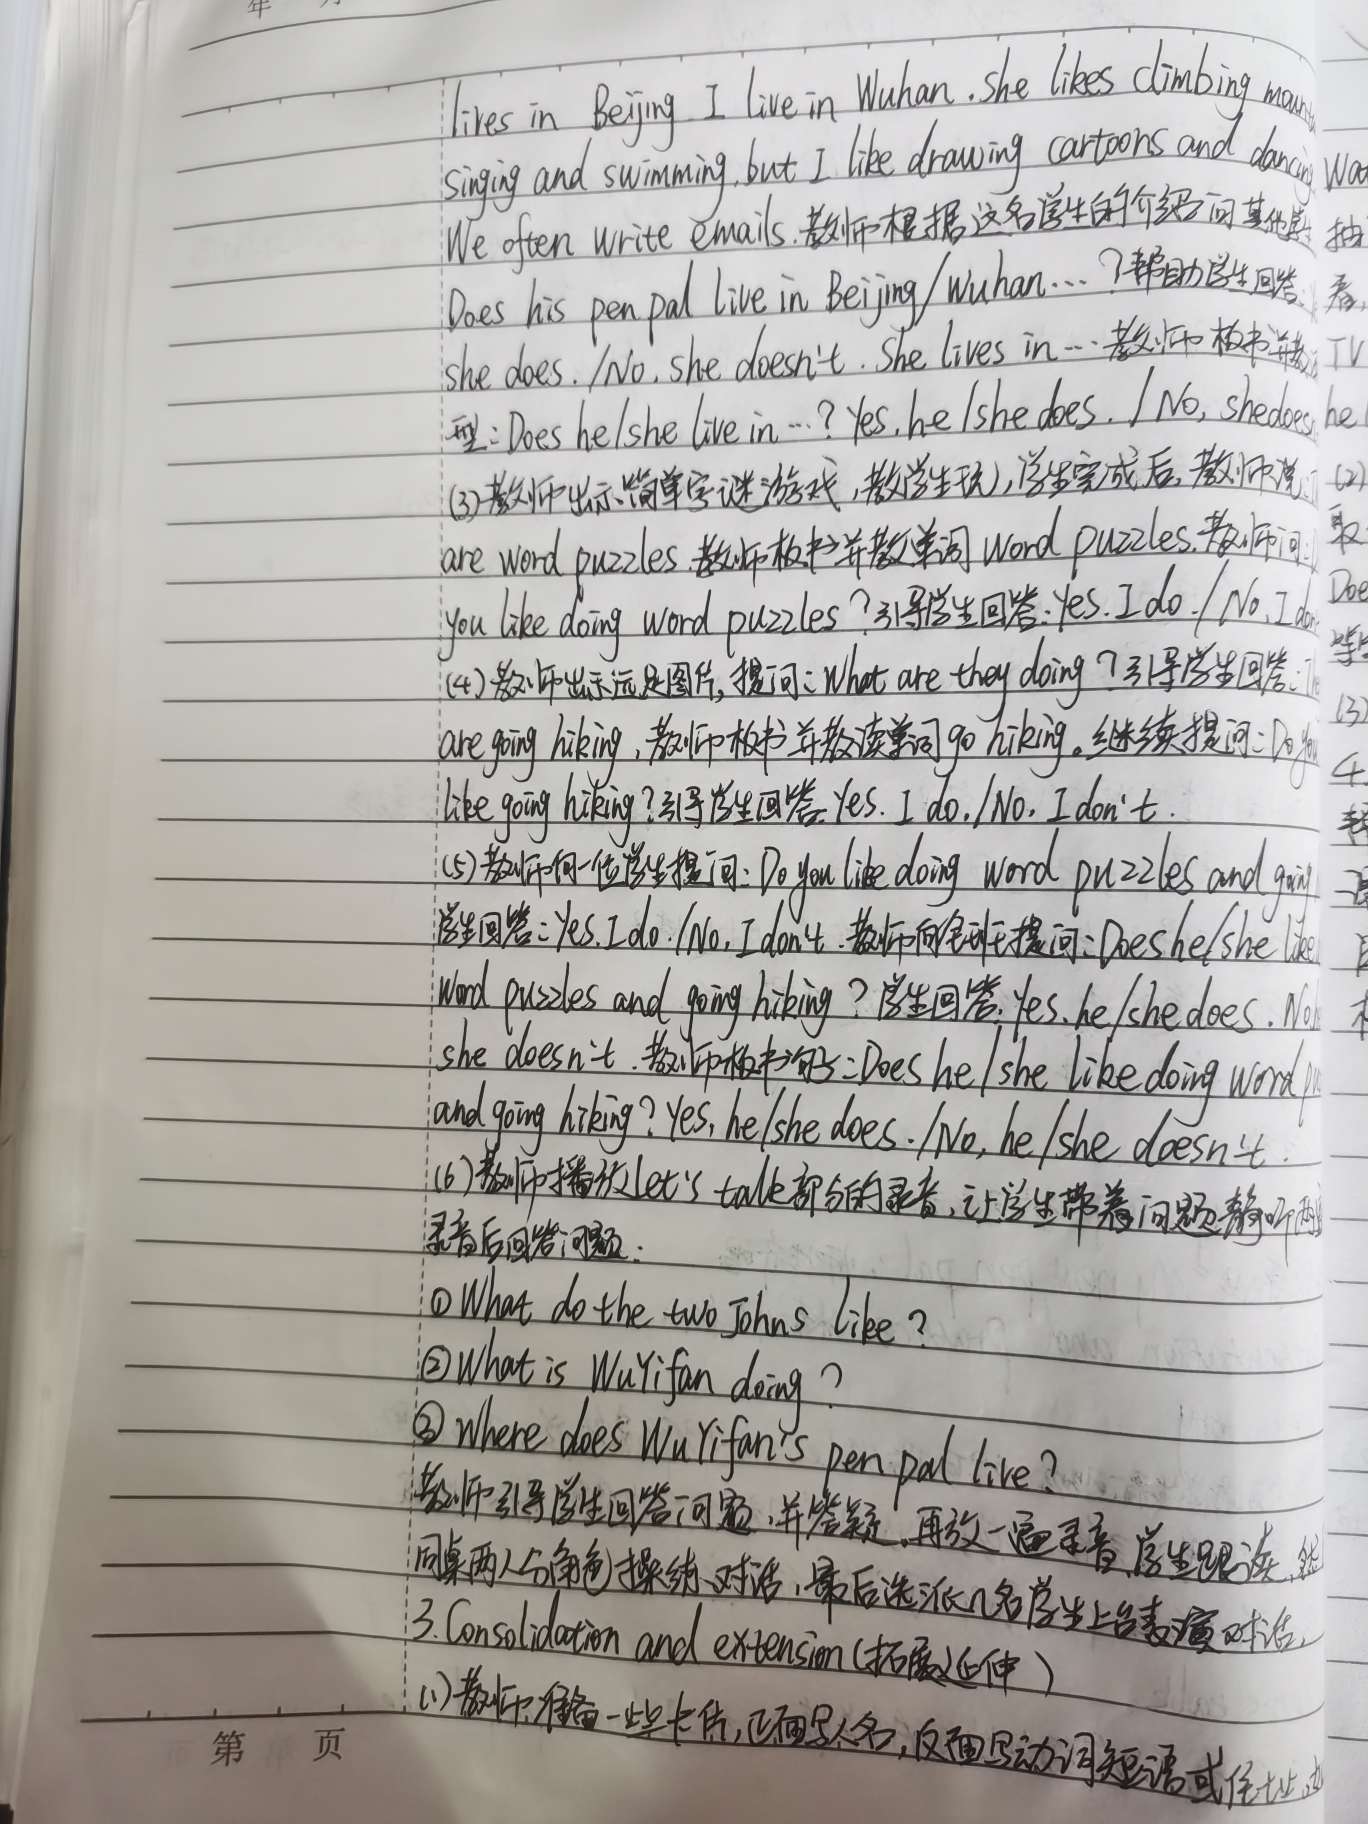 年 月
lives in Beijing. I live in Wuhan. She likes climbing
singing and swimming, but I like drawing cartoons and dancing
We often write emails. 教师根据这名学生的介绍问其他学
Does his pen pal live in Beijing/Wuhan…? 帮助学生回答:
she does. /No, she doesn't. She lives in… 教师板书并教
型: Does he/she live in …? Yes, he/she does. / No, she does
(3) 教师出示简单字谜游戏, 教学生玩, 学生完成后, 教师说:
are word puzzles. 教师板书并教单词 word puzzles. 教师问:
you like doing word puzzles? 引导学生回答: Yes. I do. / No, I don
(4) 教师出示远足图片, 提问: What are they doing? 引导学生回答:
are going hiking, 教师板书并教读单词 go hiking。继续提问: Do you
like going hiking? 引导学生回答: Yes. I do. /No. I don't.
(5) 教师向一位学生提问: Do you like doing word puzzles and going
学生回答: Yes, I do. /No, I don't. 教师向全班提问: Does he/she like
word puzzles and going hiking? 学生回答: Yes, he/she does. No
she doesn't. 教师板书句子: Does he/she like doing word
and going hiking? Yes, he/she does. /No, he/she doesn't.
(6) 教师播放 Let's talk 部分的录音, 让学生带着问题静听两
录音后回答问题:
① What do the two Johns like?
② What is Wu Yifan doing?
③ Where does Wu Yifan's pen pal live?
教师引导学生回答问题, 并答疑。再放一遍录音, 学生跟读,
同桌两人分角色操练对话, 最后选派几名学生上台表演对话。
3. Consolidation and extension (拓展延伸)
(1) 教师准备一些卡片, 正面写人名, 反面写动词短语或住址,
第 页
(2)
(3)